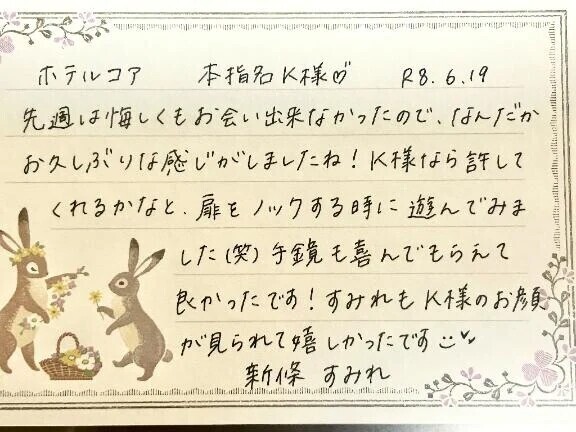 ホテルコア 本指名K様♡ R8.6.19
先週は悔しくもお会い出来なかったので、なんだか
お久しぶりな感じがしましたね！K様なら許して
くれるかなと、扉をノックする時に遊んでみま
した(笑)手鏡も喜んでもらえて
良かったです！すみれもK様のお顔
が見られて嬉しかったです
新條 すみれ